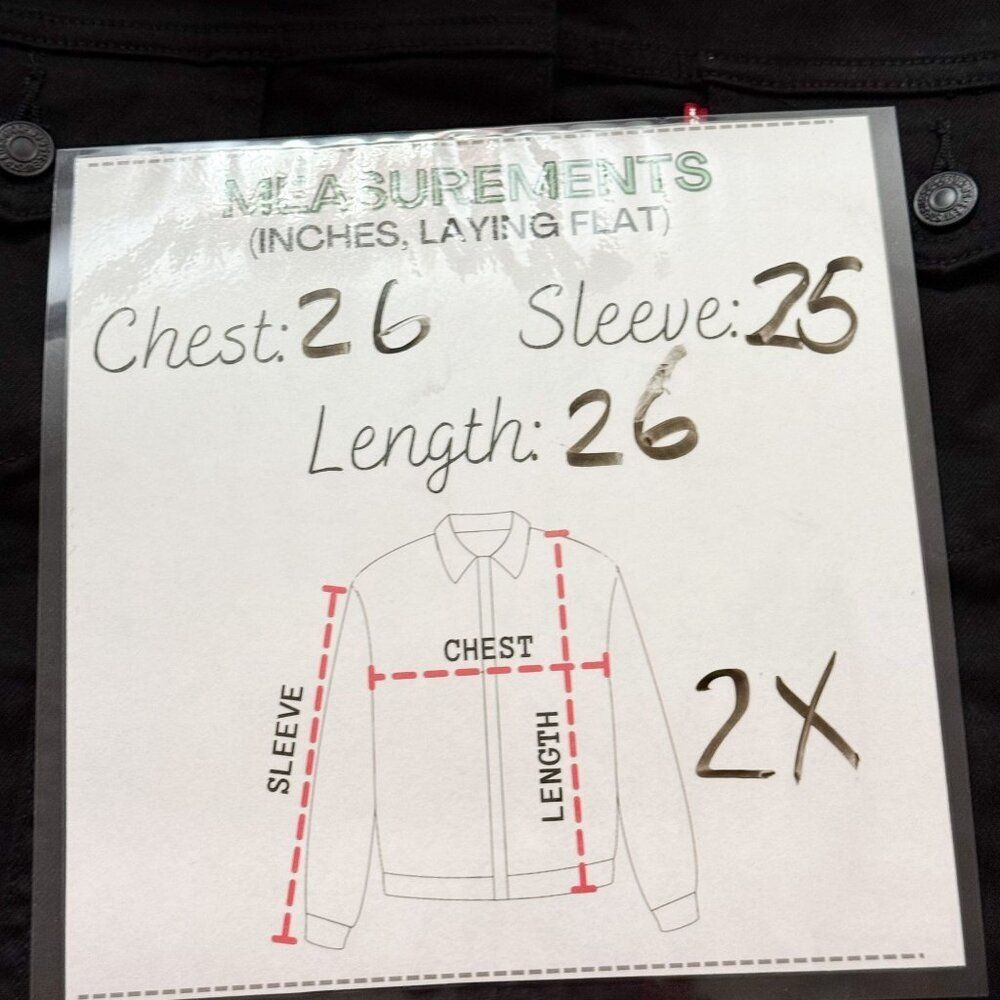 MEASUREMENTS
(INCHES, LAYING FLAT)
Chest: 26 Sleeve: 25
Length: 26
CHEST
SLEEVE
LENGTH
2X